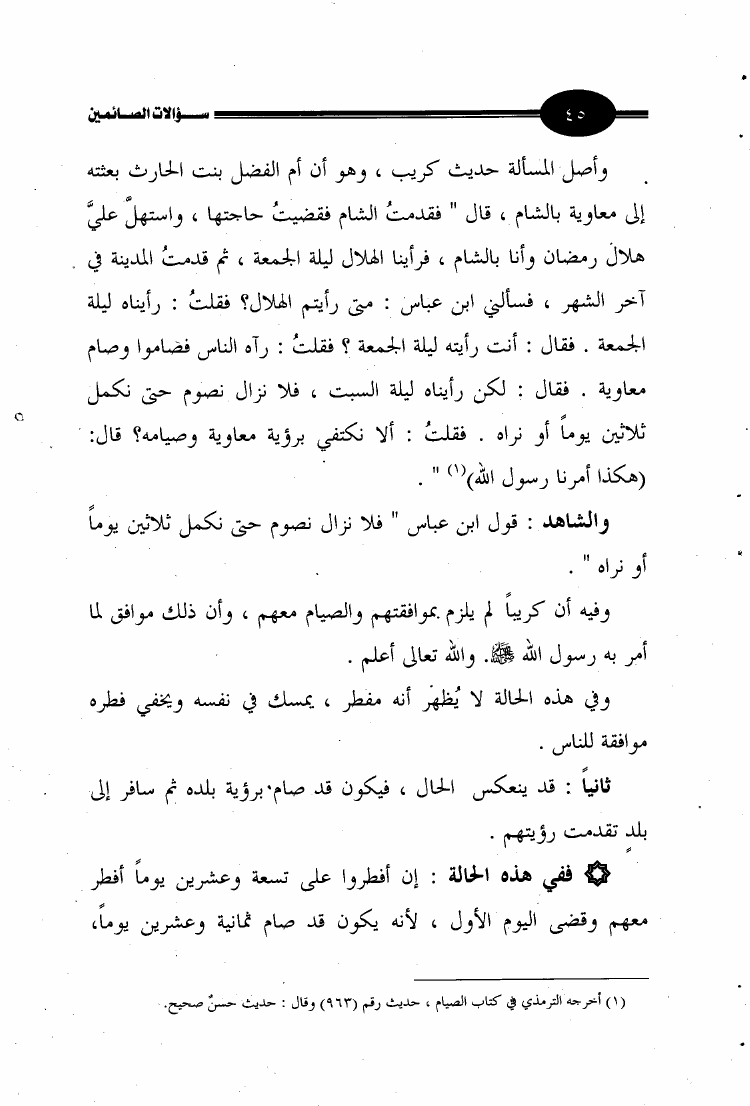 ٤٥
ســـؤالات الصــائمـين
وأصل المسألة حديث كريب ، وهو أن أم الفضل بنت الحارث بعثته
إلى معاوية بالشام ، قال " فقدمتُ الشام فقضيتُ حاجتها ، واستهلَّ عليَّ
هلالُ رمضان وأنا بالشام ، فرأينا الهلال ليلة الجمعة ، ثم قدمتُ المدينة في
آخر الشهر ، فسألني ابن عباس : متى رأيتم الهلال؟ فقلتُ : رأيناه ليلة
الجمعة . فقال : أنت رأيته ليلة الجمعة ؟ فقلتُ : رآه الناس فصاموا وصام
معاوية . فقال : لكن رأيناه ليلة السبت ، فلا نزال نصوم حتى نكمل
ثلاثين يوماً أو نراه . فقلتُ : ألا نكتفي برؤية معاوية وصيامه؟ قال:
(هكذا أمرنا رسول الله)(١) " .
والشاهد : قول ابن عباس " فلا نزال نصوم حتى نكمل ثلاثين يوماً
أو نراه " .
وفيه أن كريباً لم يلزم بموافقتهم والصيام معهم ، وأن ذلك موافق لما
أمر به رسول الله ﷺ. والله تعالى أعلم .
وفي هذه الحالة لا يُظهر أنه مفطر ، يمسك في نفسه ويخفي فطره
موافقة للناس .
ثانياً : قد ينعكس الحال ، فيكون قد صام برؤية بلده ثم سافر إلى
بلدٍ تقدمت رؤيتهم .
۞ ففي هذه الحالة : إن أفطروا على تسعة وعشرين يوماً أفطر
معهم وقضى اليوم الأول ، لأنه يكون قد صام ثمانية وعشرين يوماً،
(١) أخرجه الترمذي في كتاب الصيام ، حديث رقم (٩٦٣) وقال : حديث حسنٌ صحيح.